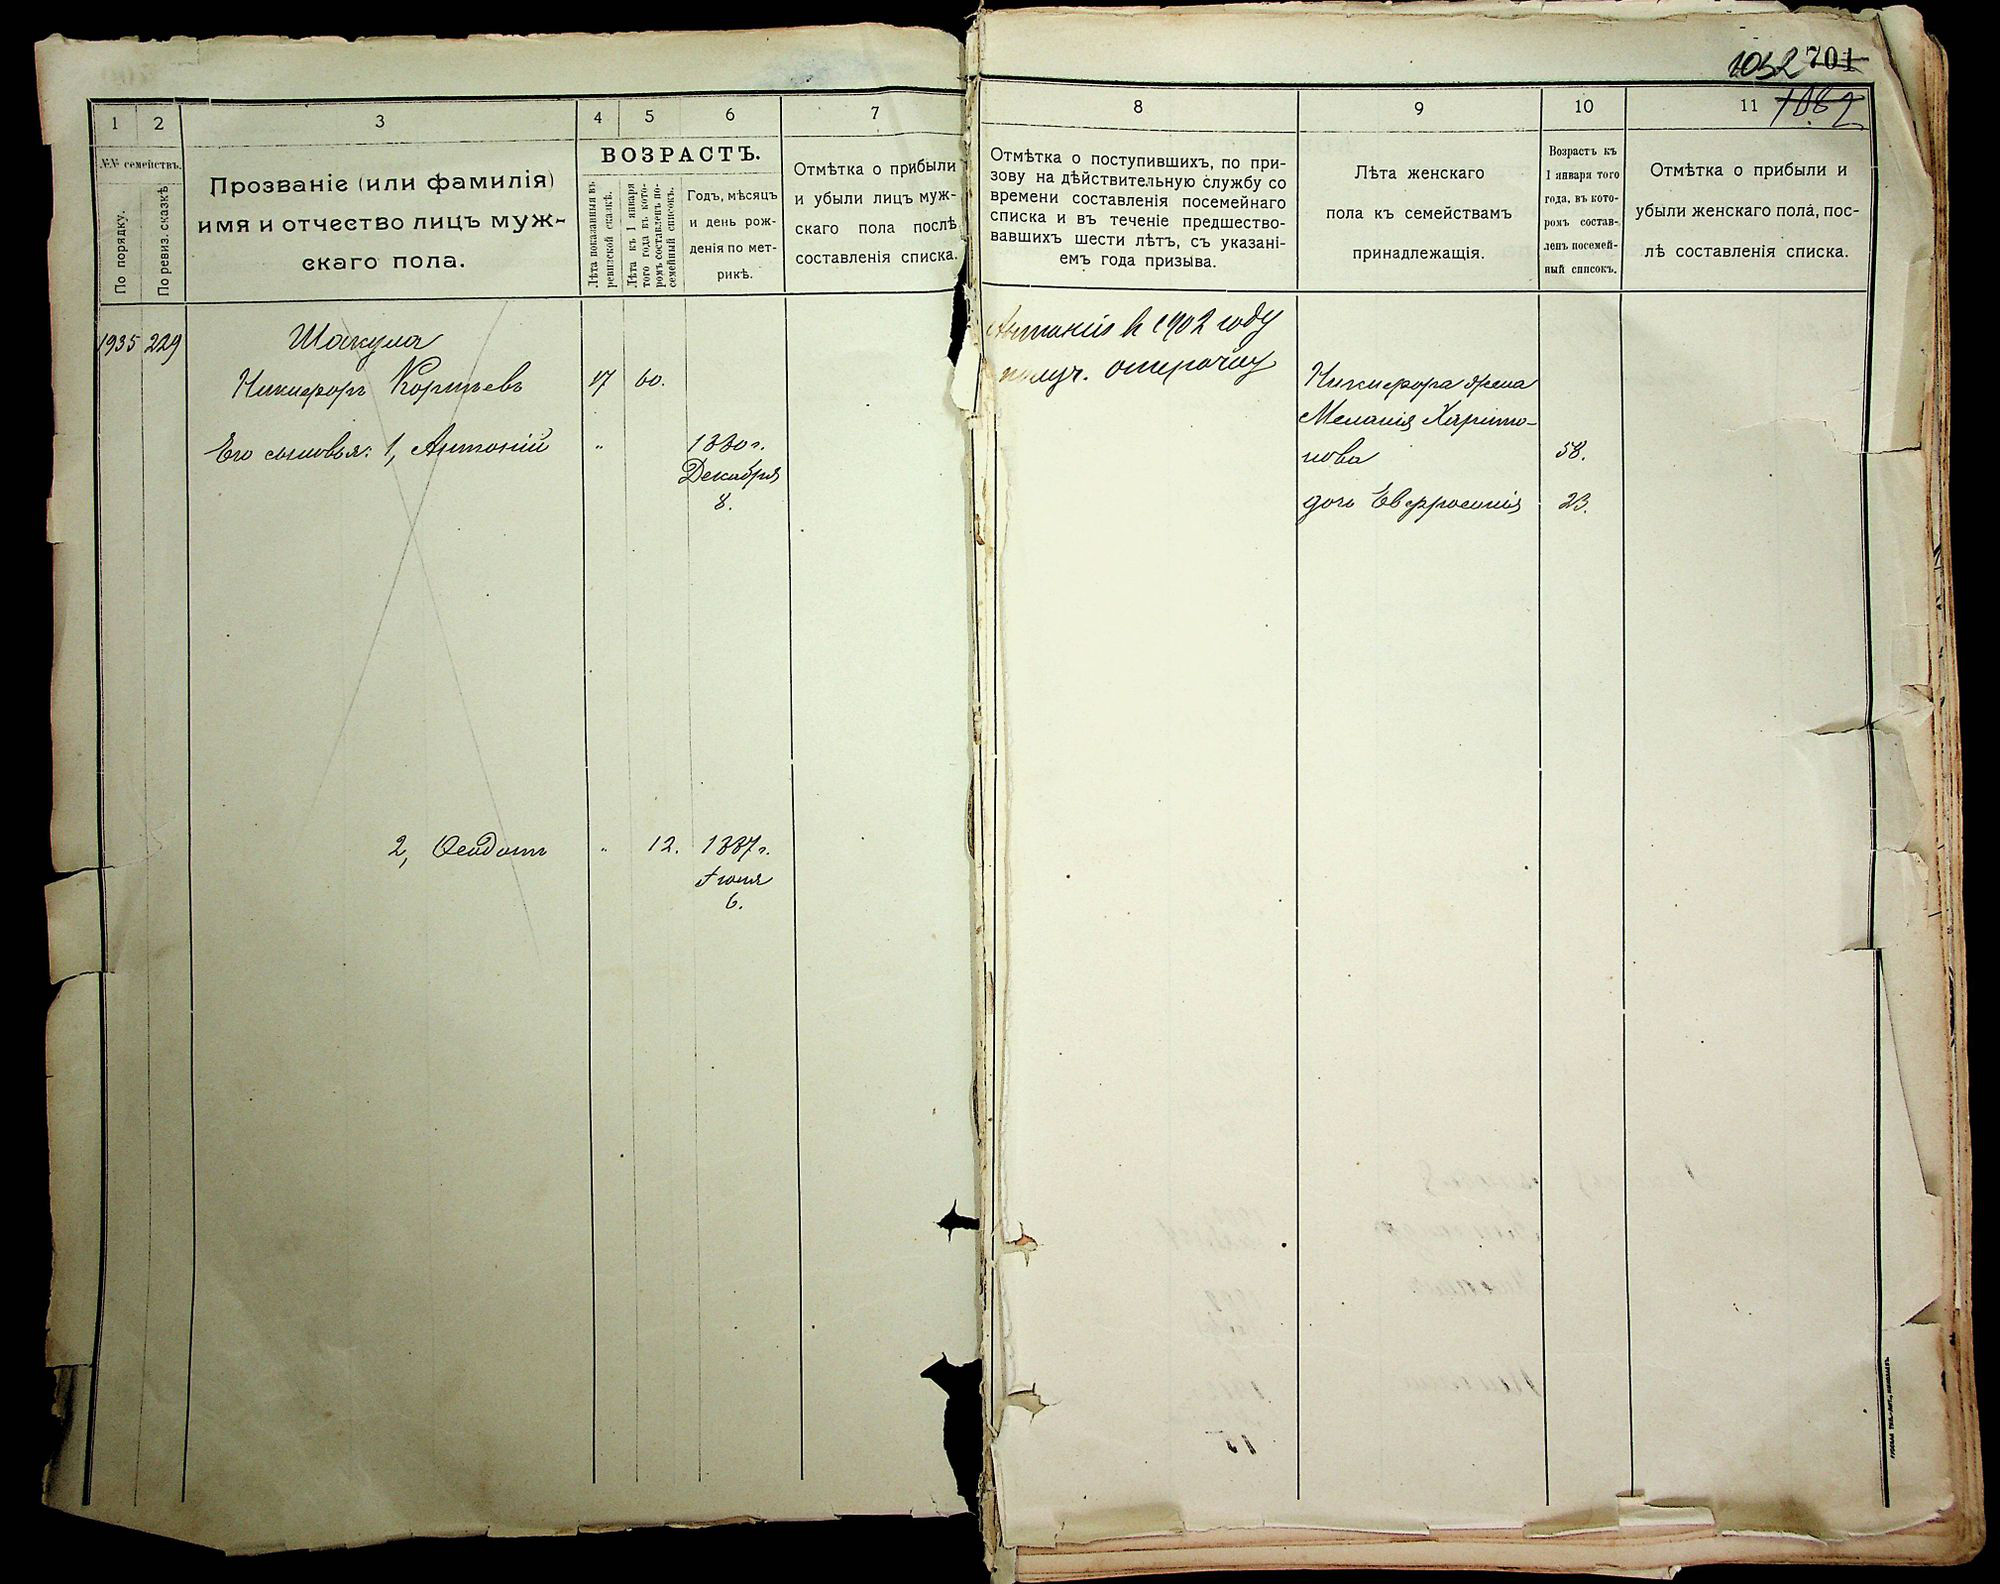 1032 701
1 2 3 4 5 6 7 8 9 10 11 1032
№№ семействъ.
По порядку.
По ревиз. сказкѣ
Прозваніе (или фамилія)
имя и отчество лицъ муж-
скаго пола.
ВОЗРАСТЪ.
Лѣта показанныя въ
ревизской сказкѣ.
Лѣта къ 1 января
того года въ кото-
ромъ составленъ по-
семейный списокъ.
Годъ, мѣсяцъ
и день рож-
денія по мет-
рикѣ.
Отмѣтка о прибыли
и убыли лицъ муж-
скаго пола послѣ
составленія списка.
Отмѣтка о поступившихъ, по при-
зову на дѣйствительную службу со
времени составленія посемейнаго
списка и въ теченіе предшество-
вавшихъ шести лѣтъ, съ указані-
емъ года призыва.
Лѣта женскаго
пола къ семействамъ
принадлежащія.
Возрастъ къ
1 января того
года, въ кото-
ромъ состав-
ленъ посемей-
ный списокъ.
Отмѣтка о прибыли и
убыли женскаго пола, пос-
лѣ составленія списка.
1935 229 Шакула
Никифоръ Корнѣевъ 17 60.
Его сыновья: 1, Антоній " 1880 г.
Декабря
8.
2, Ѳеодотъ " 12. 1887 г.
Іюня
6.
Антоній въ 1902 году
получ. отсрочку
Никифора жена
Меланія Харито-
нова 58.
дочь Евфросинія 23.
РУССКАЯ ТИП.-ЛИТ., НИКОЛАЕВЪ.